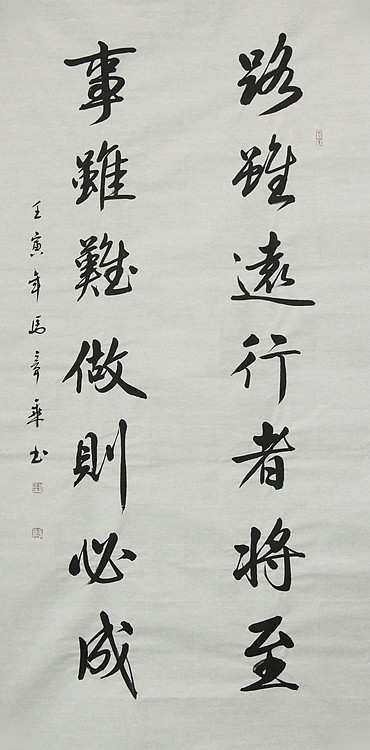 路雖遠行者將至
事雖難做則必成
壬寅年馬章乘书